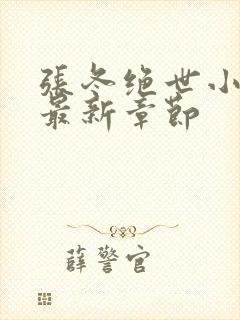 張冬绝世小
最新章節
薛警官